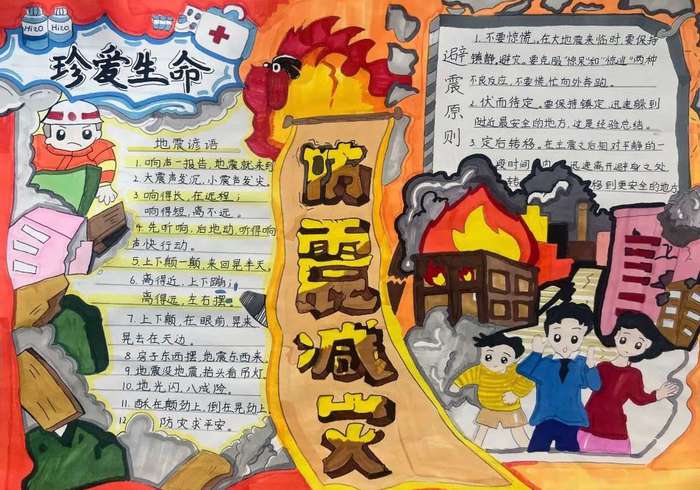 H2O H2O
珍爱生命
地震谚语
1. 响声一报告,地震就来到
2. 大震声发沉,小震声发尖
3 响得长,在远程;
响得短,离不远。
4. 先听响,后地动,听得响
声快行动。
5. 上下颠一颠,来回晃半天。
6. 离得近,上下蹦;
离得远,左右摆
7. 上下颠,在眼前,晃来
晃去在天边。
8. 房子东西摆,地震东西来
9. 地震没地震,抬头看吊灯
10. 地光闪,八成险。
11. 酥在颠劲上,倒在晃劲上
12 防灾求平安。
防震减灾
避震原则
1. 不要惊慌。在大地震来临时,要保持
镇静,避灾。要克服"惊呆"和"惊逃"两种
不良反应,不要慌忙向外奔跑。
2. 伏而待定。要保持镇定,迅速躲到
附近最安全的地方,这是经验总结。
3. 定后转移。在主震之后相对平静的一
段时间内,迅速离开避身之处
转移到更安全的地方